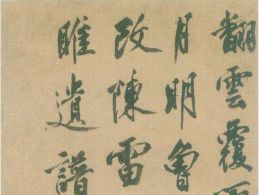 翻雲覆
月明魯
改陳雷
睢遺譜